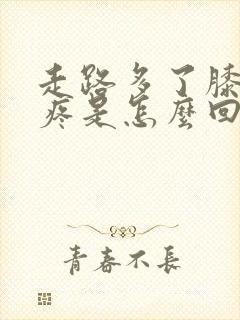 走路多了膝
疼是怎麼回
青春不長